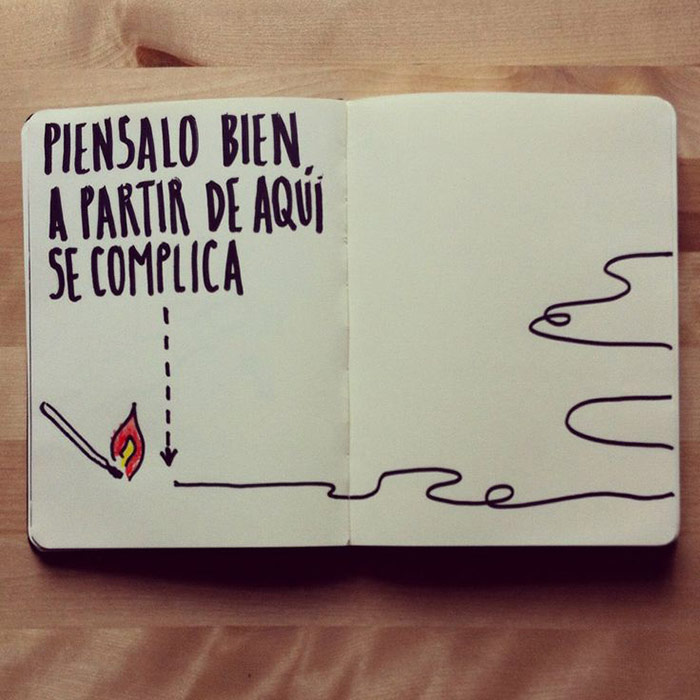 PIENSALO BIEN
A PARTIR DE AQUÍ
SE COMPLICA